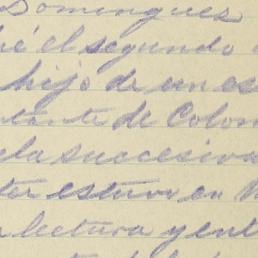 Domingues
el segundo
hijo de un es
tante de Colom
ela sucesiva
ter estuvo en
lectura y ent